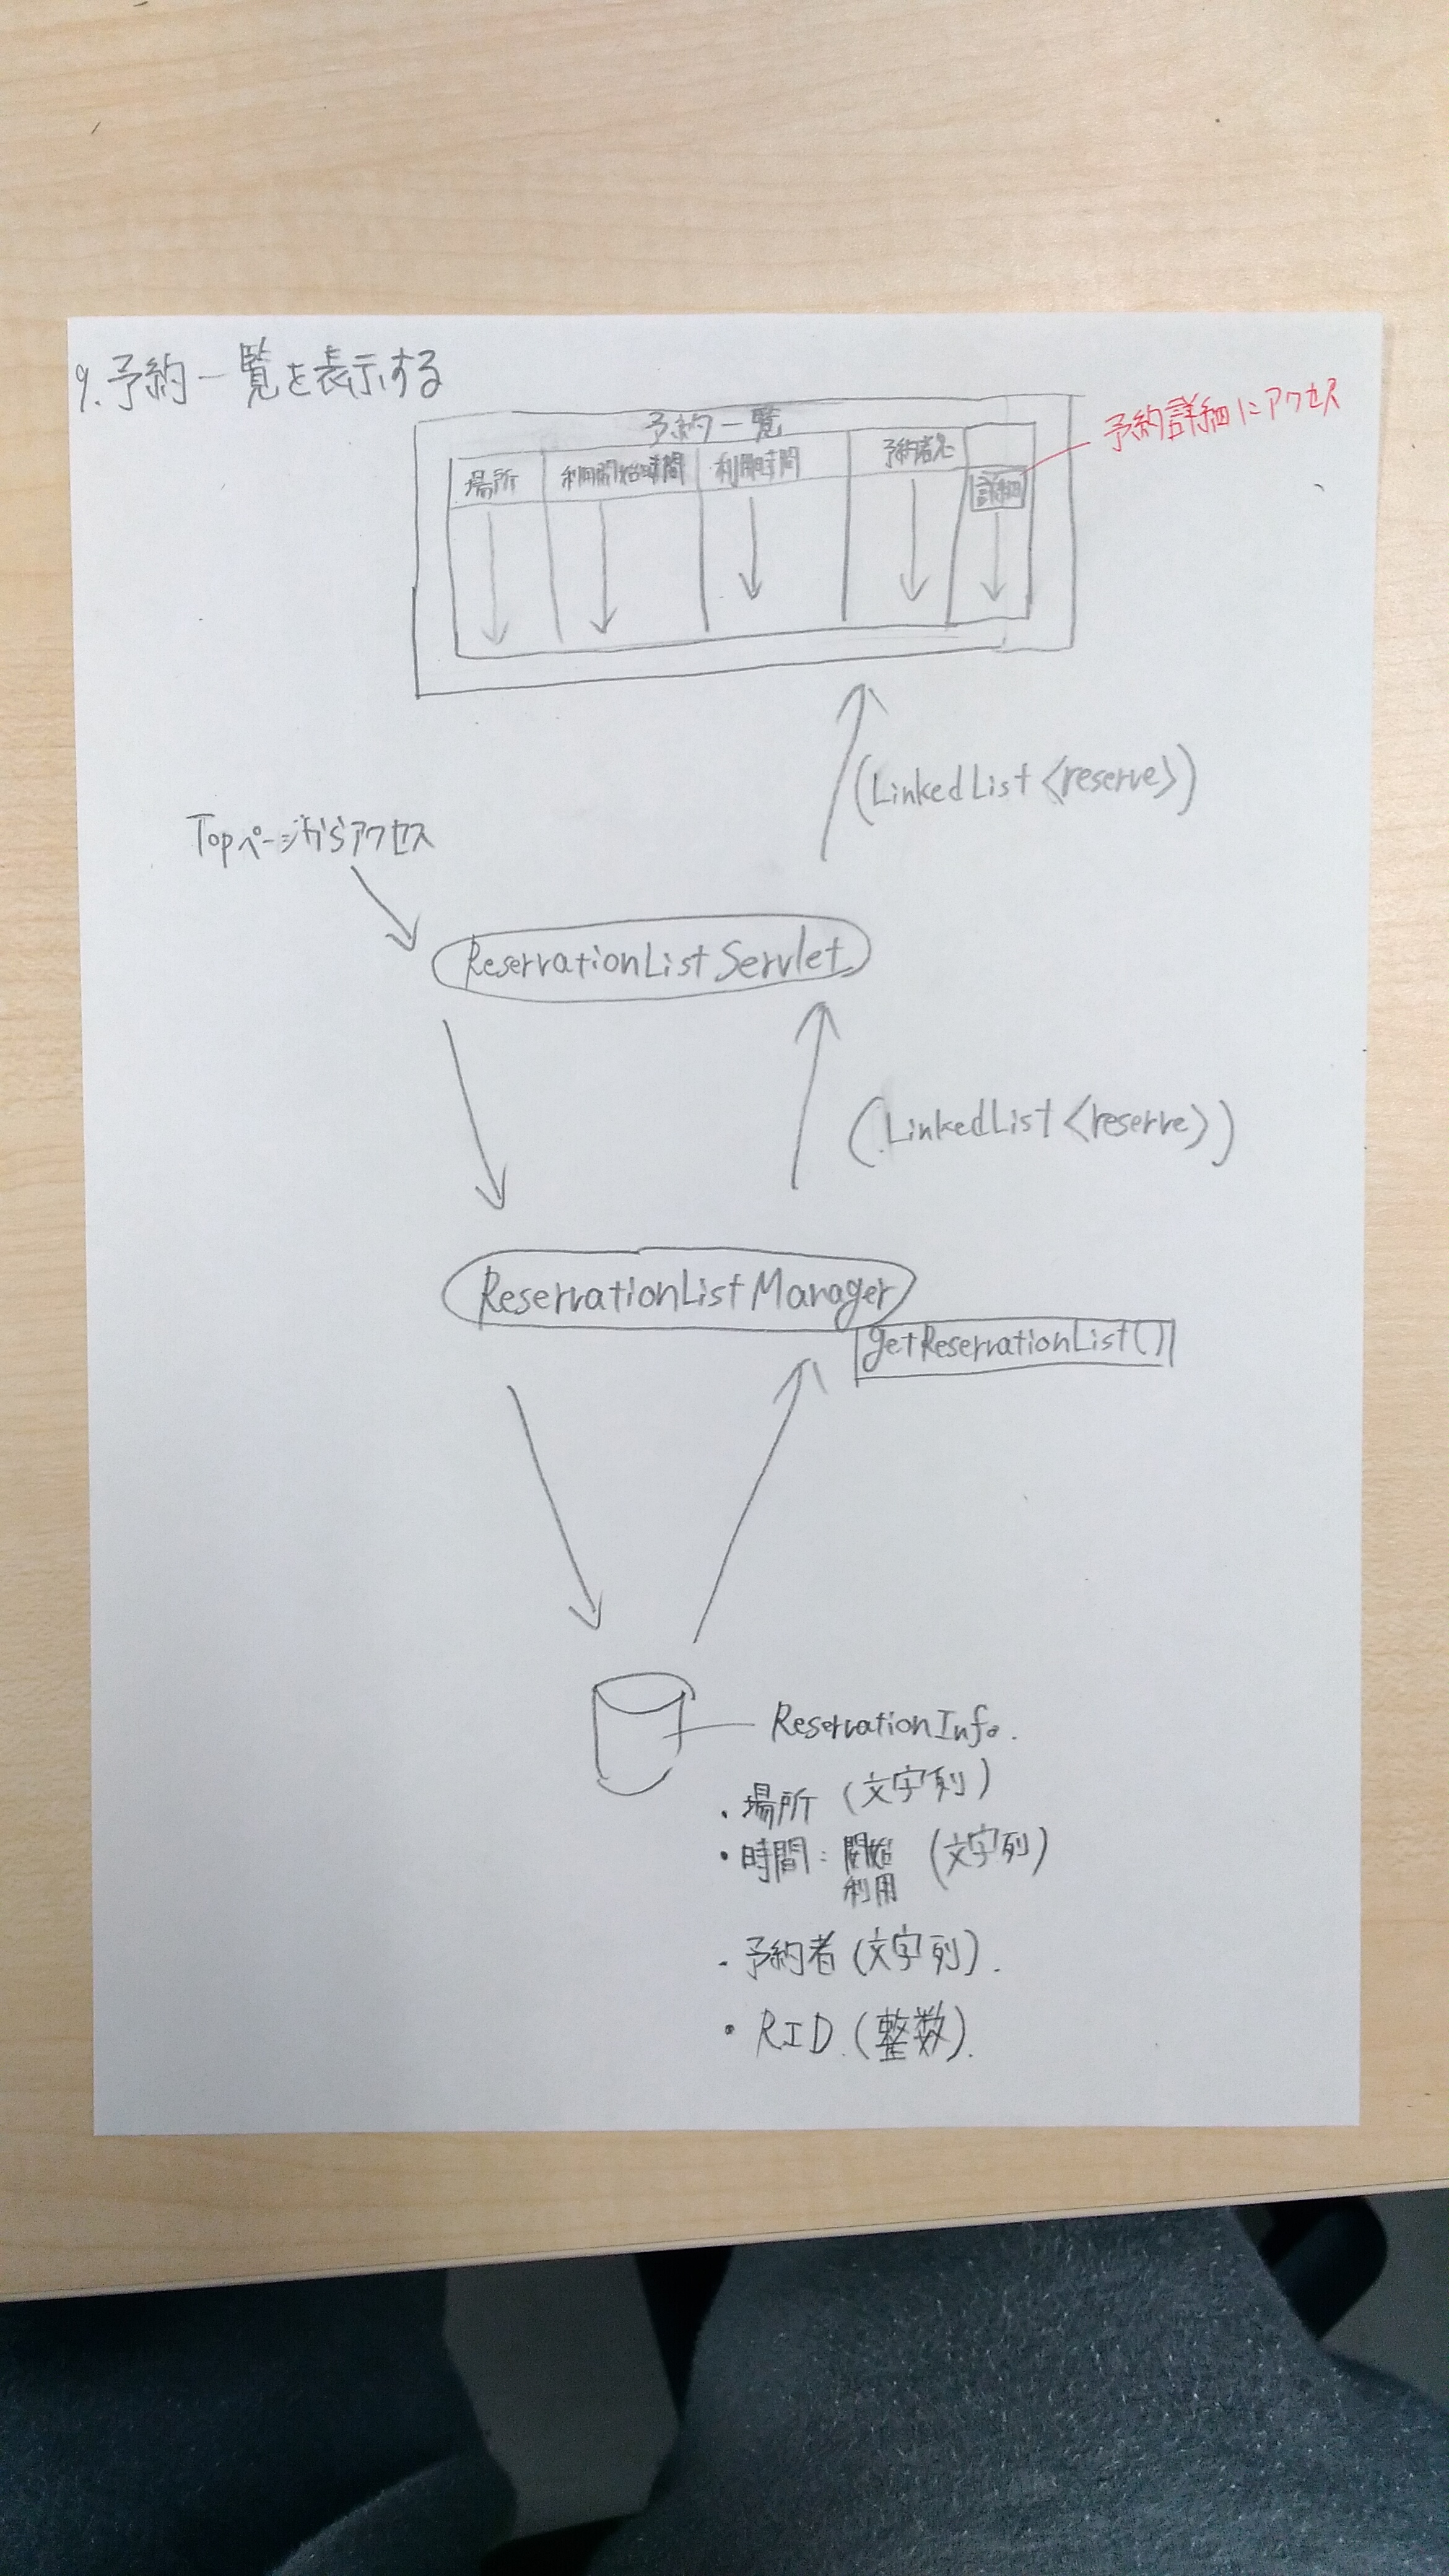 9.予約一覧を表示する
予約一覧
予約詳細にアクセス
場所 利用開始時間 利用時間 予約者名
詳細
(LinkedList<reserve>)
Topページからアクセス
ReservationListServlet
(LinkedList<reserve>)
ReservationListManager
getReservationList()
ReservationInfo.
・場所 (文字列)
・時間:開始 (文字列)
利用
・予約者(文字列).
・RID.(整数).